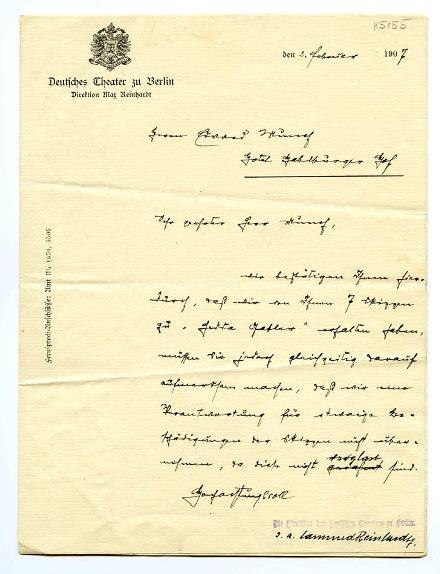 K5155
Deutsches Theater zu Berlin
Direktion Max Reinhardt
den 2. Februar 1907
Herrn Edvard Munch
Hotel Habsburger Hof
Sehr geehrter Herr Munch,
wir bestätigen Ihnen hier-
durch, daß wir von Ihnen 7 Skizzen
zu „Hedda Gabler“ erhalten haben,
müssen Sie jedoch gleichzeitig darauf
aufmerksam machen, daß wir eine
Verantwortung für etwaige Be-
schädigungen der Skizzen nicht über-
nehmen, da diese nicht verglast sind.
Hochachtungsvoll
Die Direktion des Deutschen Theaters zu Berlin.
Reinhardt
Fernsprech-Anschlüsse: Amt III,